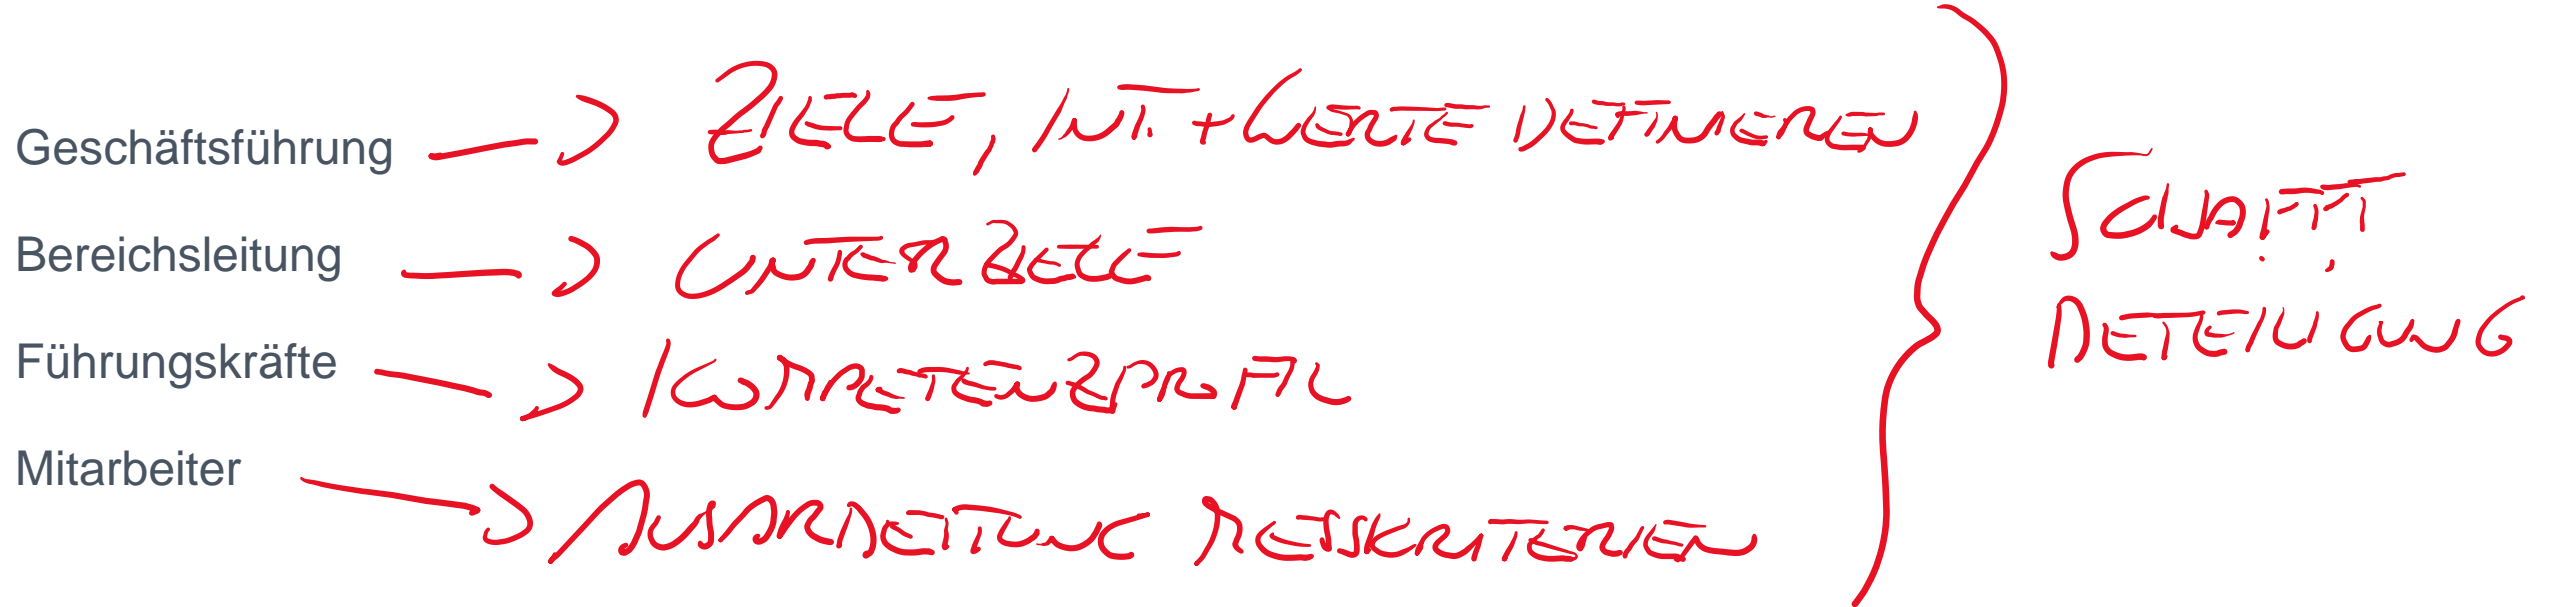 Geschäftsführung → ZIELE, INT. + WERTE DEFINIEREN
Bereichsleitung → UNTERZIELE
Führungskräfte → KOMPETENZPROFIL
Mitarbeiter → AUSARBEITUNG MESSKRITERIEN
SCHAFFT
BETEILIGUNG